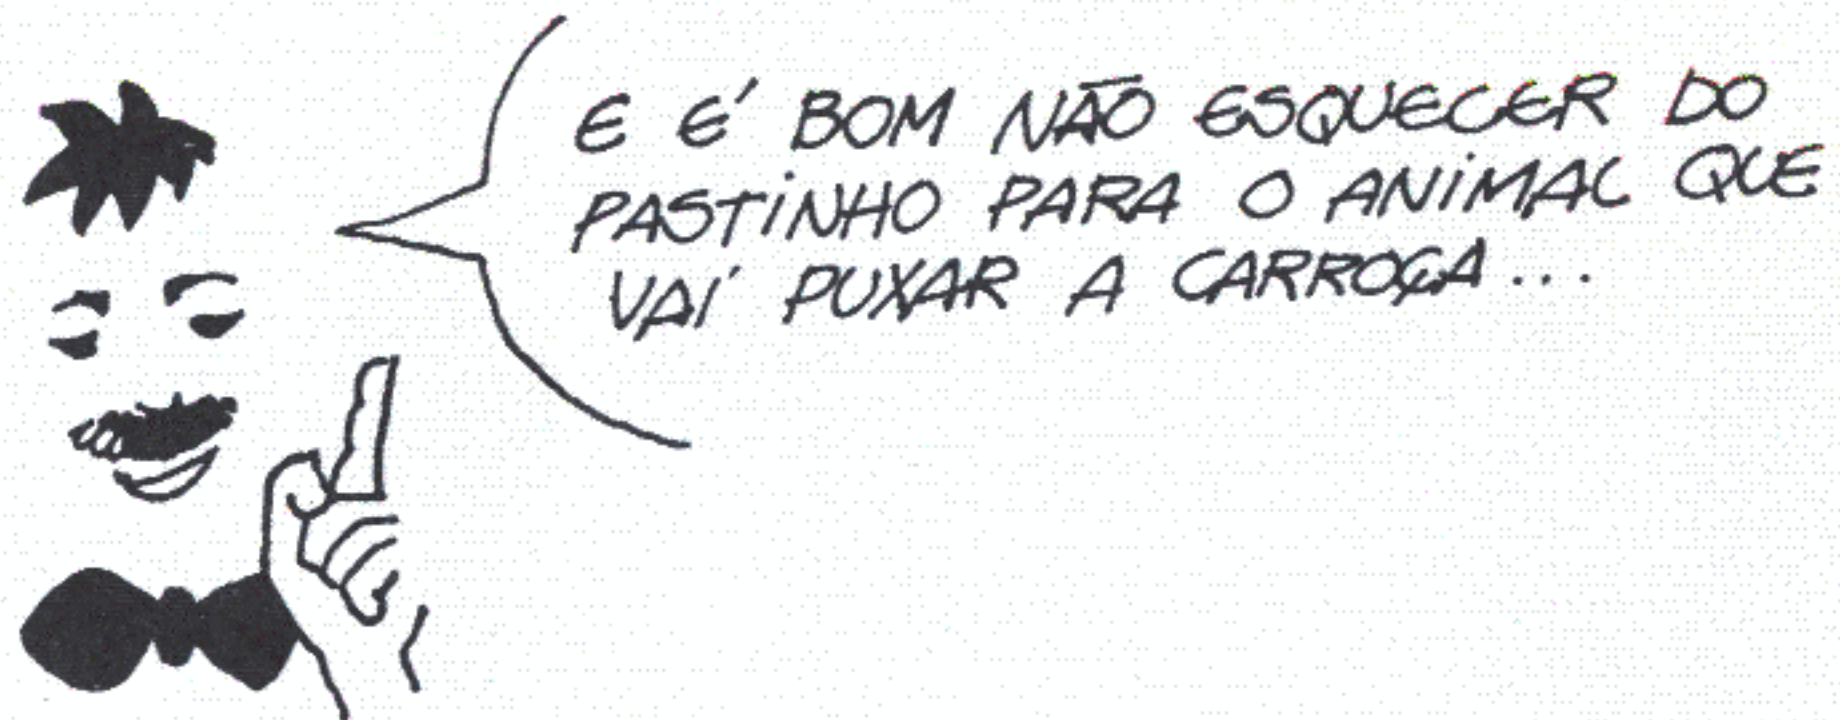 E É BOM NÃO ESQUECER DO
PASTINHO PARA O ANIMAL QUE
VAI PUXAR A CARROÇA...